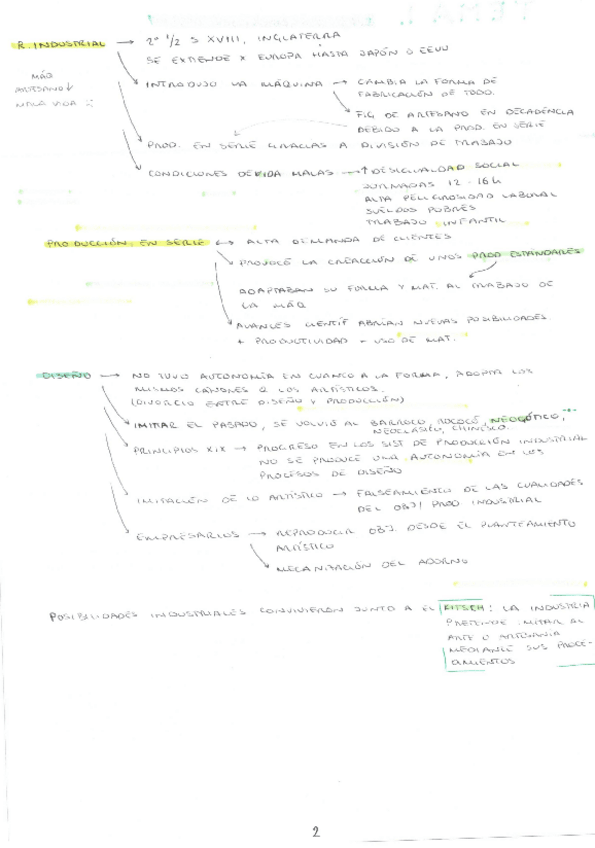 R. INDUSTRIAL → 2º 1/2 S XVIII, INGLATERRA
SE EXTIENDE X EUROPA HASTA JAPÓN O EEUU
MÁQ
ARTESANO ↓
MALA VIDA :(
INTRODUJO LA MÁQUINA → CAMBIA LA FORMA DE
FABRICACIÓN DE TODO.
FIG DE ARTESANO EN DECADENCIA
DEBIDO A LA PROD. EN SERIE
PROD. EN SERIE GRACIAS A DIVISIÓN DE TRABAJO
CONDICIONES DE VIDA MALAS → ↑ DESIGUALDAD SOCIAL
JORNADAS 12 - 16h
ALTA PELIGROSIDAD LABORAL
SUELDOS POBRES
TRABAJO INFANTIL
PRODUCCIÓN EN SERIE ↔ ALTA DEMANDA DE CLIENTES
PROVOCÓ LA CREACCIÓN DE UNOS PROD ESTANDARES
ADAPTABAN SU FORMA Y MAT. AL TRABAJO DE
LA MÁQ
AVANCES CIENTÍF ABRÍAN NUEVAS POSIBILIDADES.
+ PRODUCTIVIDAD - USO DE MAT.
DISEÑO → NO TUVO AUTONOMÍA EN CUANTO A LA FORMA, ADOPTA LOS
MISMOS CANONES Q LOS ARTÍSTICOS.
(DIVORCIO ENTRE DISEÑO Y PRODUCCIÓN)
IMITAR EL PASADO, SE VOLVIÓ AL BARROCO, ROCOCÓ, NEOGÓTICO,
NEOCLÁSICO, CHINESCO.
PRINCIPIOS XIX → PROGRESO EN LOS SIST DE PRODUCCIÓN INDUSTRIAL
NO SE PRODUCE UNA AUTONOMÍA EN LOS
PROCESOS DE DISEÑO
IMITACIÓN DE LO ARTÍSTICO → FALSEAMIENTO DE LAS CUALIDADES
DEL OBJ/ PROD INDUSTRIAL
EMPRESARIOS → REPRODUCIR OBJ. DESDE EL PLANTEAMIENTO
ARTÍSTICO
MECANIZACIÓN DEL ADORNO
POSIBILIDADES INDUSTRIALES CONVIVIERON JUNTO A EL KITSCH: LA INDUSTRIA
PRETENDE IMITAR AL
ARTE O ARTESANÍA
MEDIANTE SUS PROCE-
DIMIENTOS
2